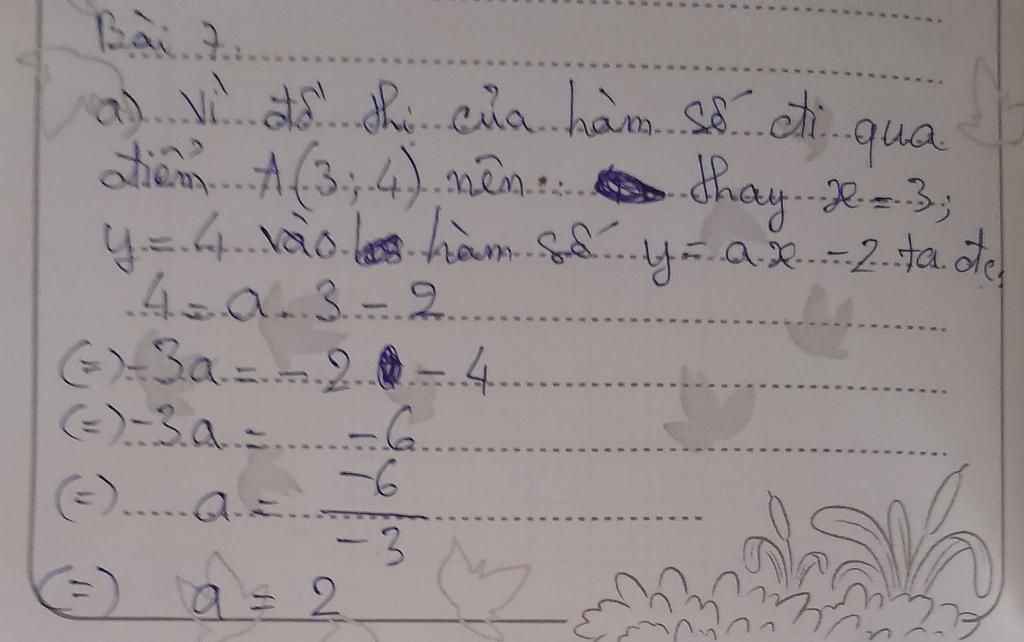 Bài 7.
a) Vì đồ thị của hàm số đi qua
điểm A(3; 4) nên: thay x = 3;
y = 4 vào hàm số y = ax - 2 ta đc
4 = a. 3 - 2
(=) -3a = -2 - 4
(=) -3a = -6
(=) a = -6/-3
(=) a = 2